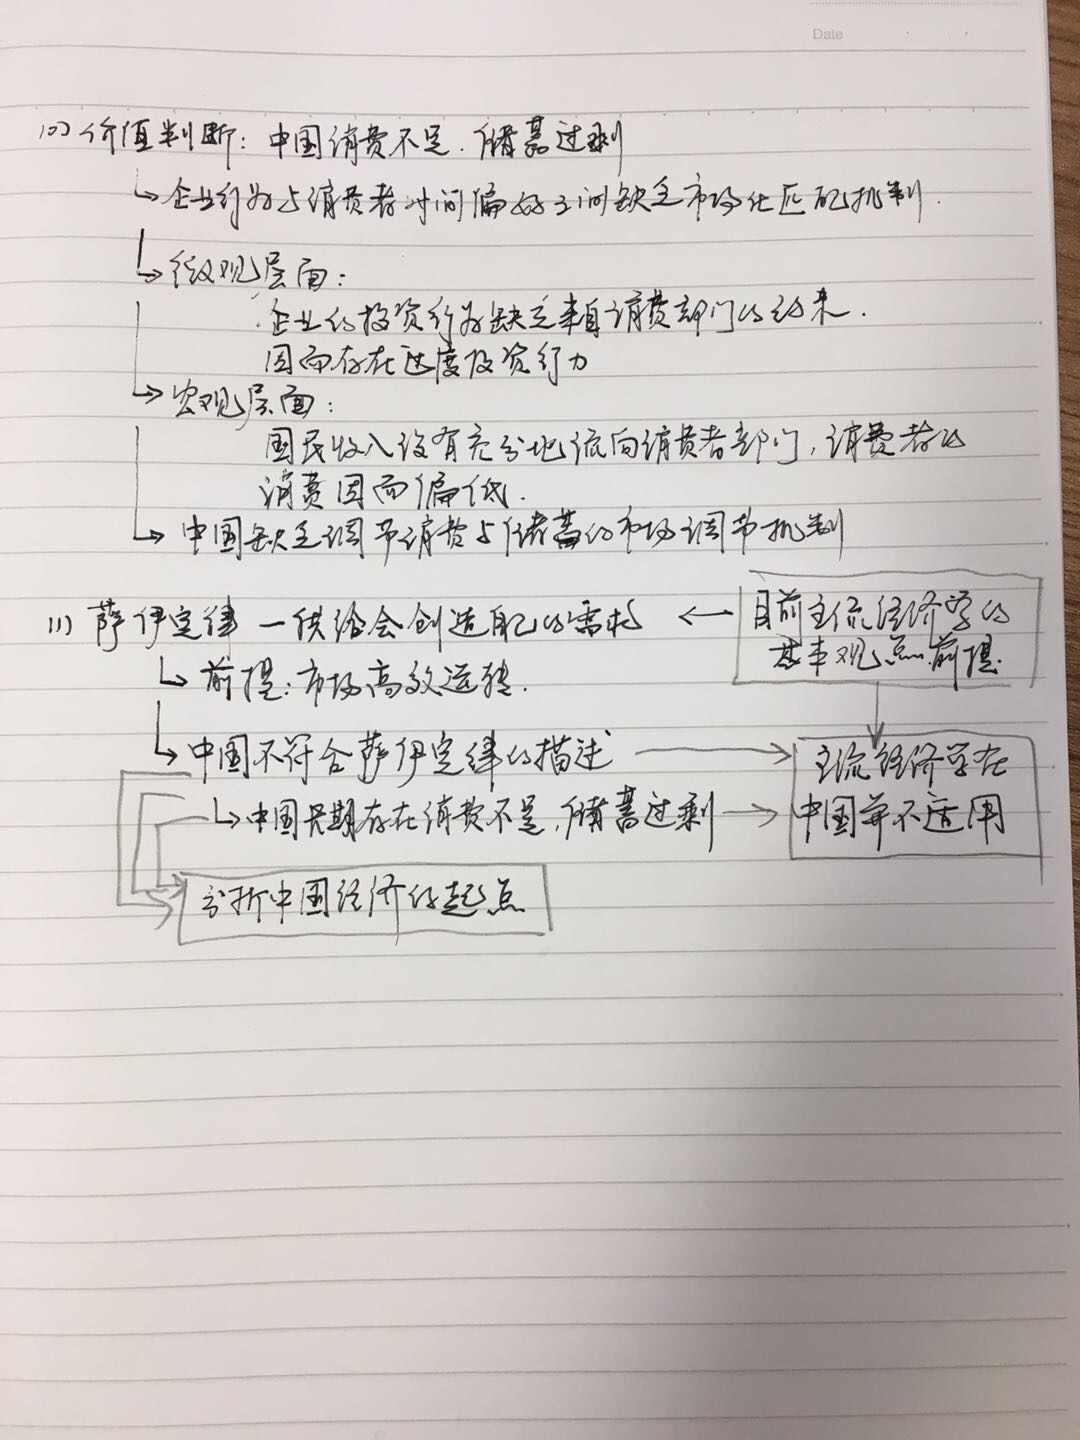 Date
10) 价值判断：中国消费不足．储蓄过剩
↳ 企业行为与消费者时间偏好之间缺乏市场化匹配机制．
↳ 微观层面：
企业的投资行为缺乏来自消费部门的约束．
因而存在过度投资行为
↳ 宏观层面：
国民收入没有充分地流向消费者部门，消费者的
消费因而偏低．
↳ 中国缺乏调节消费与储蓄的市场调节机制
11) 萨伊定律 — 供给会创造自己的需求 ← 目前主流经济学的
基本观点前提．
↳ 前提：市场高效运转．
↳ 中国不符合萨伊定律的描述 → 主流经济学在
↳ 中国长期存在消费不足，储蓄过剩 → 中国并不适用
分析中国经济的起点